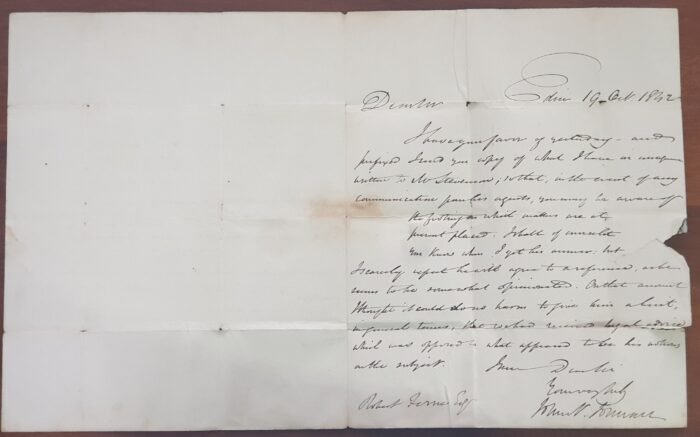 Edinr 19 Oct. 1842
Dear Sir
I have your favor of yesterday - and
prefixed I send you copy of what I have in
written to Mr Stevenson; so that, in the event of any
communication from his agents, you may be aware of
the footing on which matters are at
present placed. I shall of
you know when I get his answer; but
I scarcely expect he will agree to a reference, as he
seems to be somewhat opinionated. On that account
thought it could do us harm to give him a hint,
in general terms, that we had received legal advice
which was opposed to what appeared to be his notions
on the subject.
I am Dear Sir
Yours very truly
John
Robert Esqr